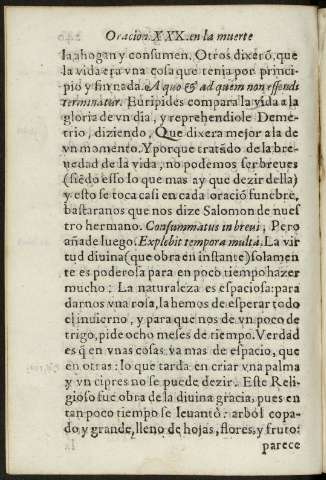 Oracion. XXX. en la muerte
la ahogan y consumen. Otros dixerõ, que
la vida era vna cosa que tenia por princi-
pio y fin nada. A quo & ad quem non
terminatur. Euripides compara la vida a la
gloria de vn dia, y reprehendiole Deme-
trio, diziendo, Que dixera mejor a la de
vn momento. Y porque tratãdo de la bre-
uedad de la vida, no podemos ser breues
(siẽdo esso lo que mas ay que dezir della)
y esto se toca casi en cada oraciõ funebre,
bastaranos que nos dize Salomon de nues
tro hermano. Consummatus in breui, Pero
añade luego. Explebit tempora multa. La vir
tud diuina (que obra en instante) solamen
te es poderosa para en poco tiempo hazer
mucho: La naturaleza es espaciosa: para
darnos vna rosa, la hemos de esperar todo
el inuierno, y para que nos de vn poco de
trigo, pide ocho meses de tiempo. Verdad
es q̃ en vnas cosas va mas de espacio, que
en otras: lo que tarda en criar vna palma
y vn cipres no se puede dezir. Este Reli-
gioso fue obra de la diuina gracia, pues en
tan poco tiempo se leuantò: arbol copa-
do y grande, lleno de hojas, flores, y fruto:
parece